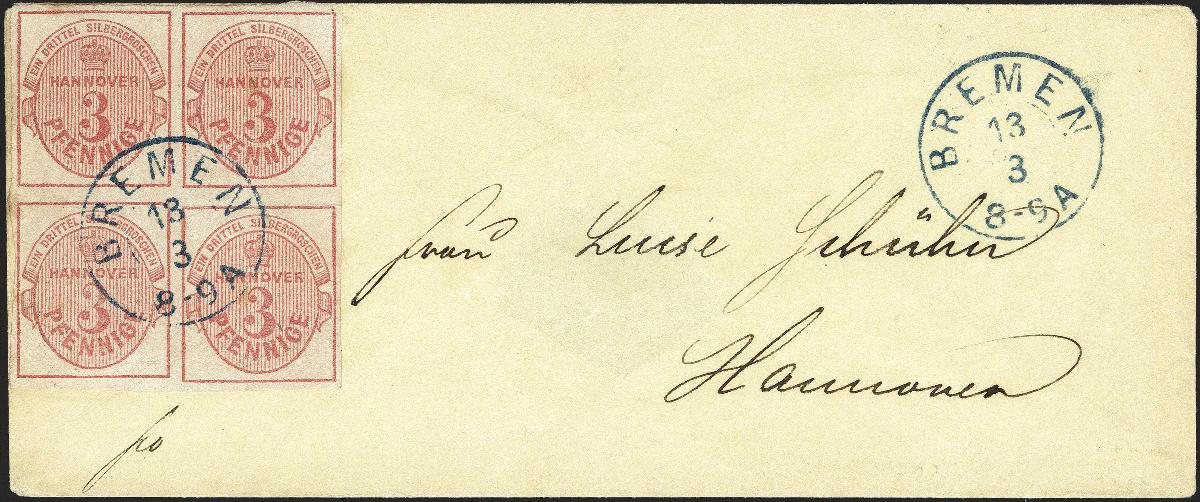 EIN DRITTEL SILBERGROSCHEN
HANNOVER
3
PFENNIGE
EIN DRITTEL SILBERGROSCHEN
HANNOVER
3
PFENNIGE
EIN DRITTEL SILBERGROSCHEN
HANNOVER
3
PFENNIGE
EIN DRITTEL SILBERGROSCHEN
HANNOVER
3
PFENNIGE
BREMEN
13
3
8-9A
BREMEN
13
3
8-9A
Frau Luise
Hannover
fo